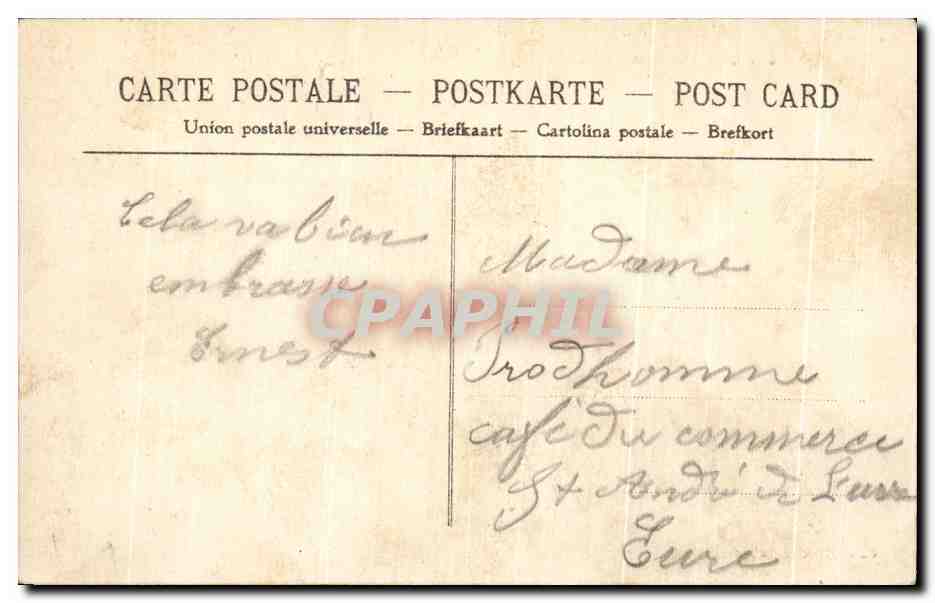 CARTE POSTALE — POSTKARTE — POST CARD
Union postale universelle — Briefkaart — Cartolina postale — Brefkort
Cela va bien
embrasse
Ernest
Madame
Prodhomme
café du commerce
St André de L'eure
Eure
CPAPHIL